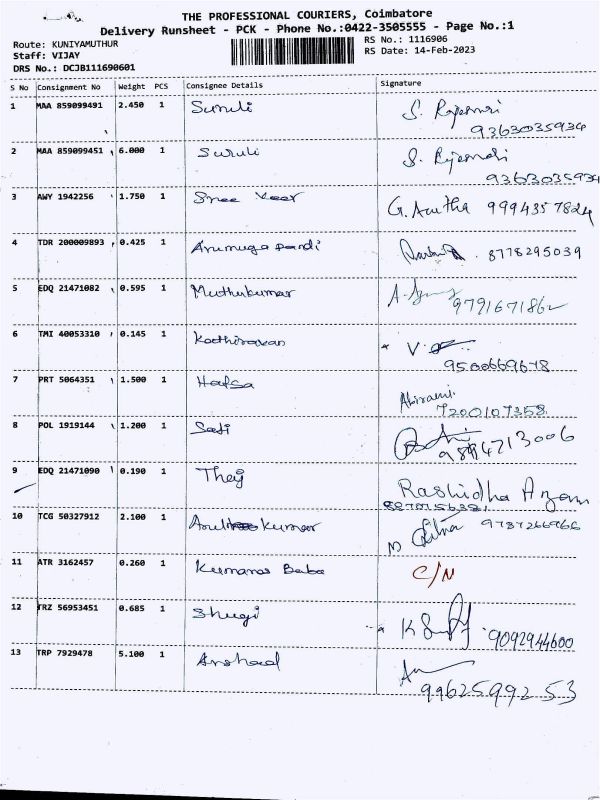 THE PROFESSIONAL COURIERS, Coimbatore
Delivery Runsheet - PCK - Phone No.:0422-3505555 - Page No.:1
Route: KUNIYAMUTHUR RS No.: 1116906
Staff: VIJAY RS Date: 14-Feb-2023
DRS No.: DCJB111690601
S No Consignment No Weight PCS Consignee Details Signature
1 MAA 859099491 2.450 1 Suruli S. Rajeswari
9363035934
2 MAA 859099451 6.000 1 Suruli S. Rajeswari
9363035934
3 AWY 1942256 1.750 1 Sree Veer G. Anitha 9994357824
4 TDR 200009893 0.425 1 Arumuga pandi 8778295039
5 EDQ 21471082 0.595 1 Muthukumar
9791671862
6 TMI 40053310 0.145 1 Kathiravan V.
9500669678
7 PRT 5064351 1.500 1 Hafsa Abirami
7200107358
8 POL 1919144 1.200 1 Sati
9894713006
9 EDQ 21471090 0.190 1 They Rashidha Azam
10 TCG 50327912 2.100 1 Arul kumar 9787266966
11 ATR 3162457 0.260 1 Kumanas Baba C/N
12 TRZ 56953451 0.685 1 Shugi K
9092944600
13 TRP 7929478 5.100 1 Arshad
9962599253